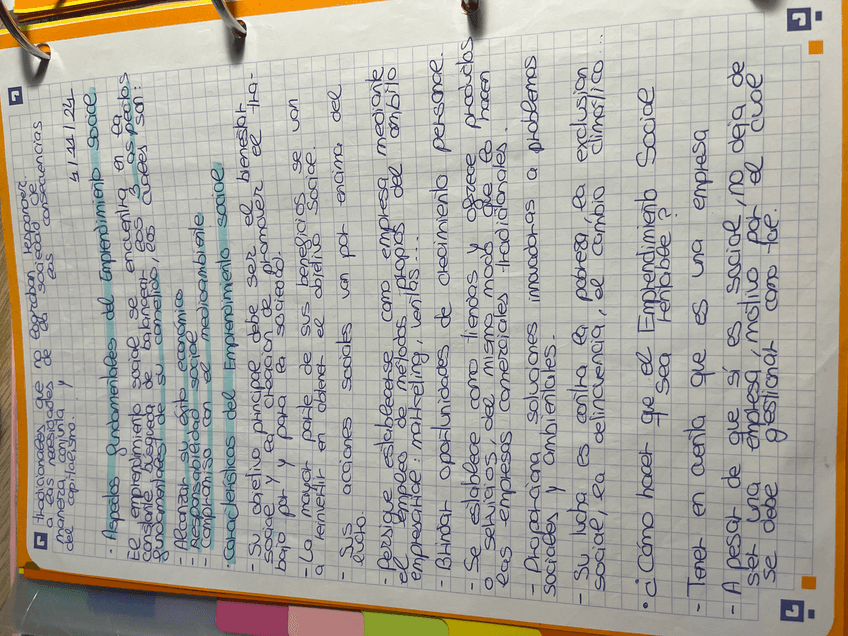 tradicionales que no logran responder
a las necesidades de la sociedad de
manera conjunta y las consecuencias
del capitalismo.
4/11/24
· Aspectos fundamentales del Emprendimiento social.
El emprendimiento social se encuentra en la
constante búsqueda de balancear los 3 aspectos
fundamentales de su cometido, los cuales son:
- Alcanzar su éxito económico
- Responsabilidad social
- Compromiso con el medioambiente
· Características del Emprendimiento social
- Su objetivo principal debe ser el bienestar
social y la creación de promover el tra-
bajo por y para la sociedad.
- La mayor parte de sus beneficios se van
a reinvertir en obtener el objetivo social.
- Sus acciones sociales van por encima del
lucro.
- Persigue establecerse como empresa mediante
el empleo de métodos propios del ámbito
empresarial: marketing, ventas...
- Brindar oportunidades de crecimiento personal.
- Se establece como tiendas y ofrece productos
o servicios del mismo modo que lo hacen
las empresas comerciales tradicionales.
- Proporciona soluciones innovadoras a problemas
sociales y ambientales.
- Su lucha es contra la pobreza, la exclusión
social, la delincuencia, el cambio climático...
· ¿Cómo hacer que el Emprendimiento Social
sea rentable?
- Tener en cuenta que es una empresa
- A pesar de que sí es social, no deja de
ser una empresa, motivo por el cual
se debe gestionar como tal.